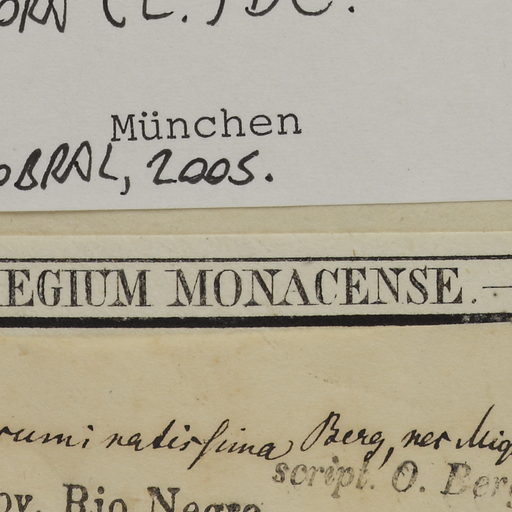 (L.) DC.
München
OBRAL, 2005.
REGIUM MONACENSE. —
ruminatissima Berg, nec Miq
script. O. Berg
ov. Rio Negro